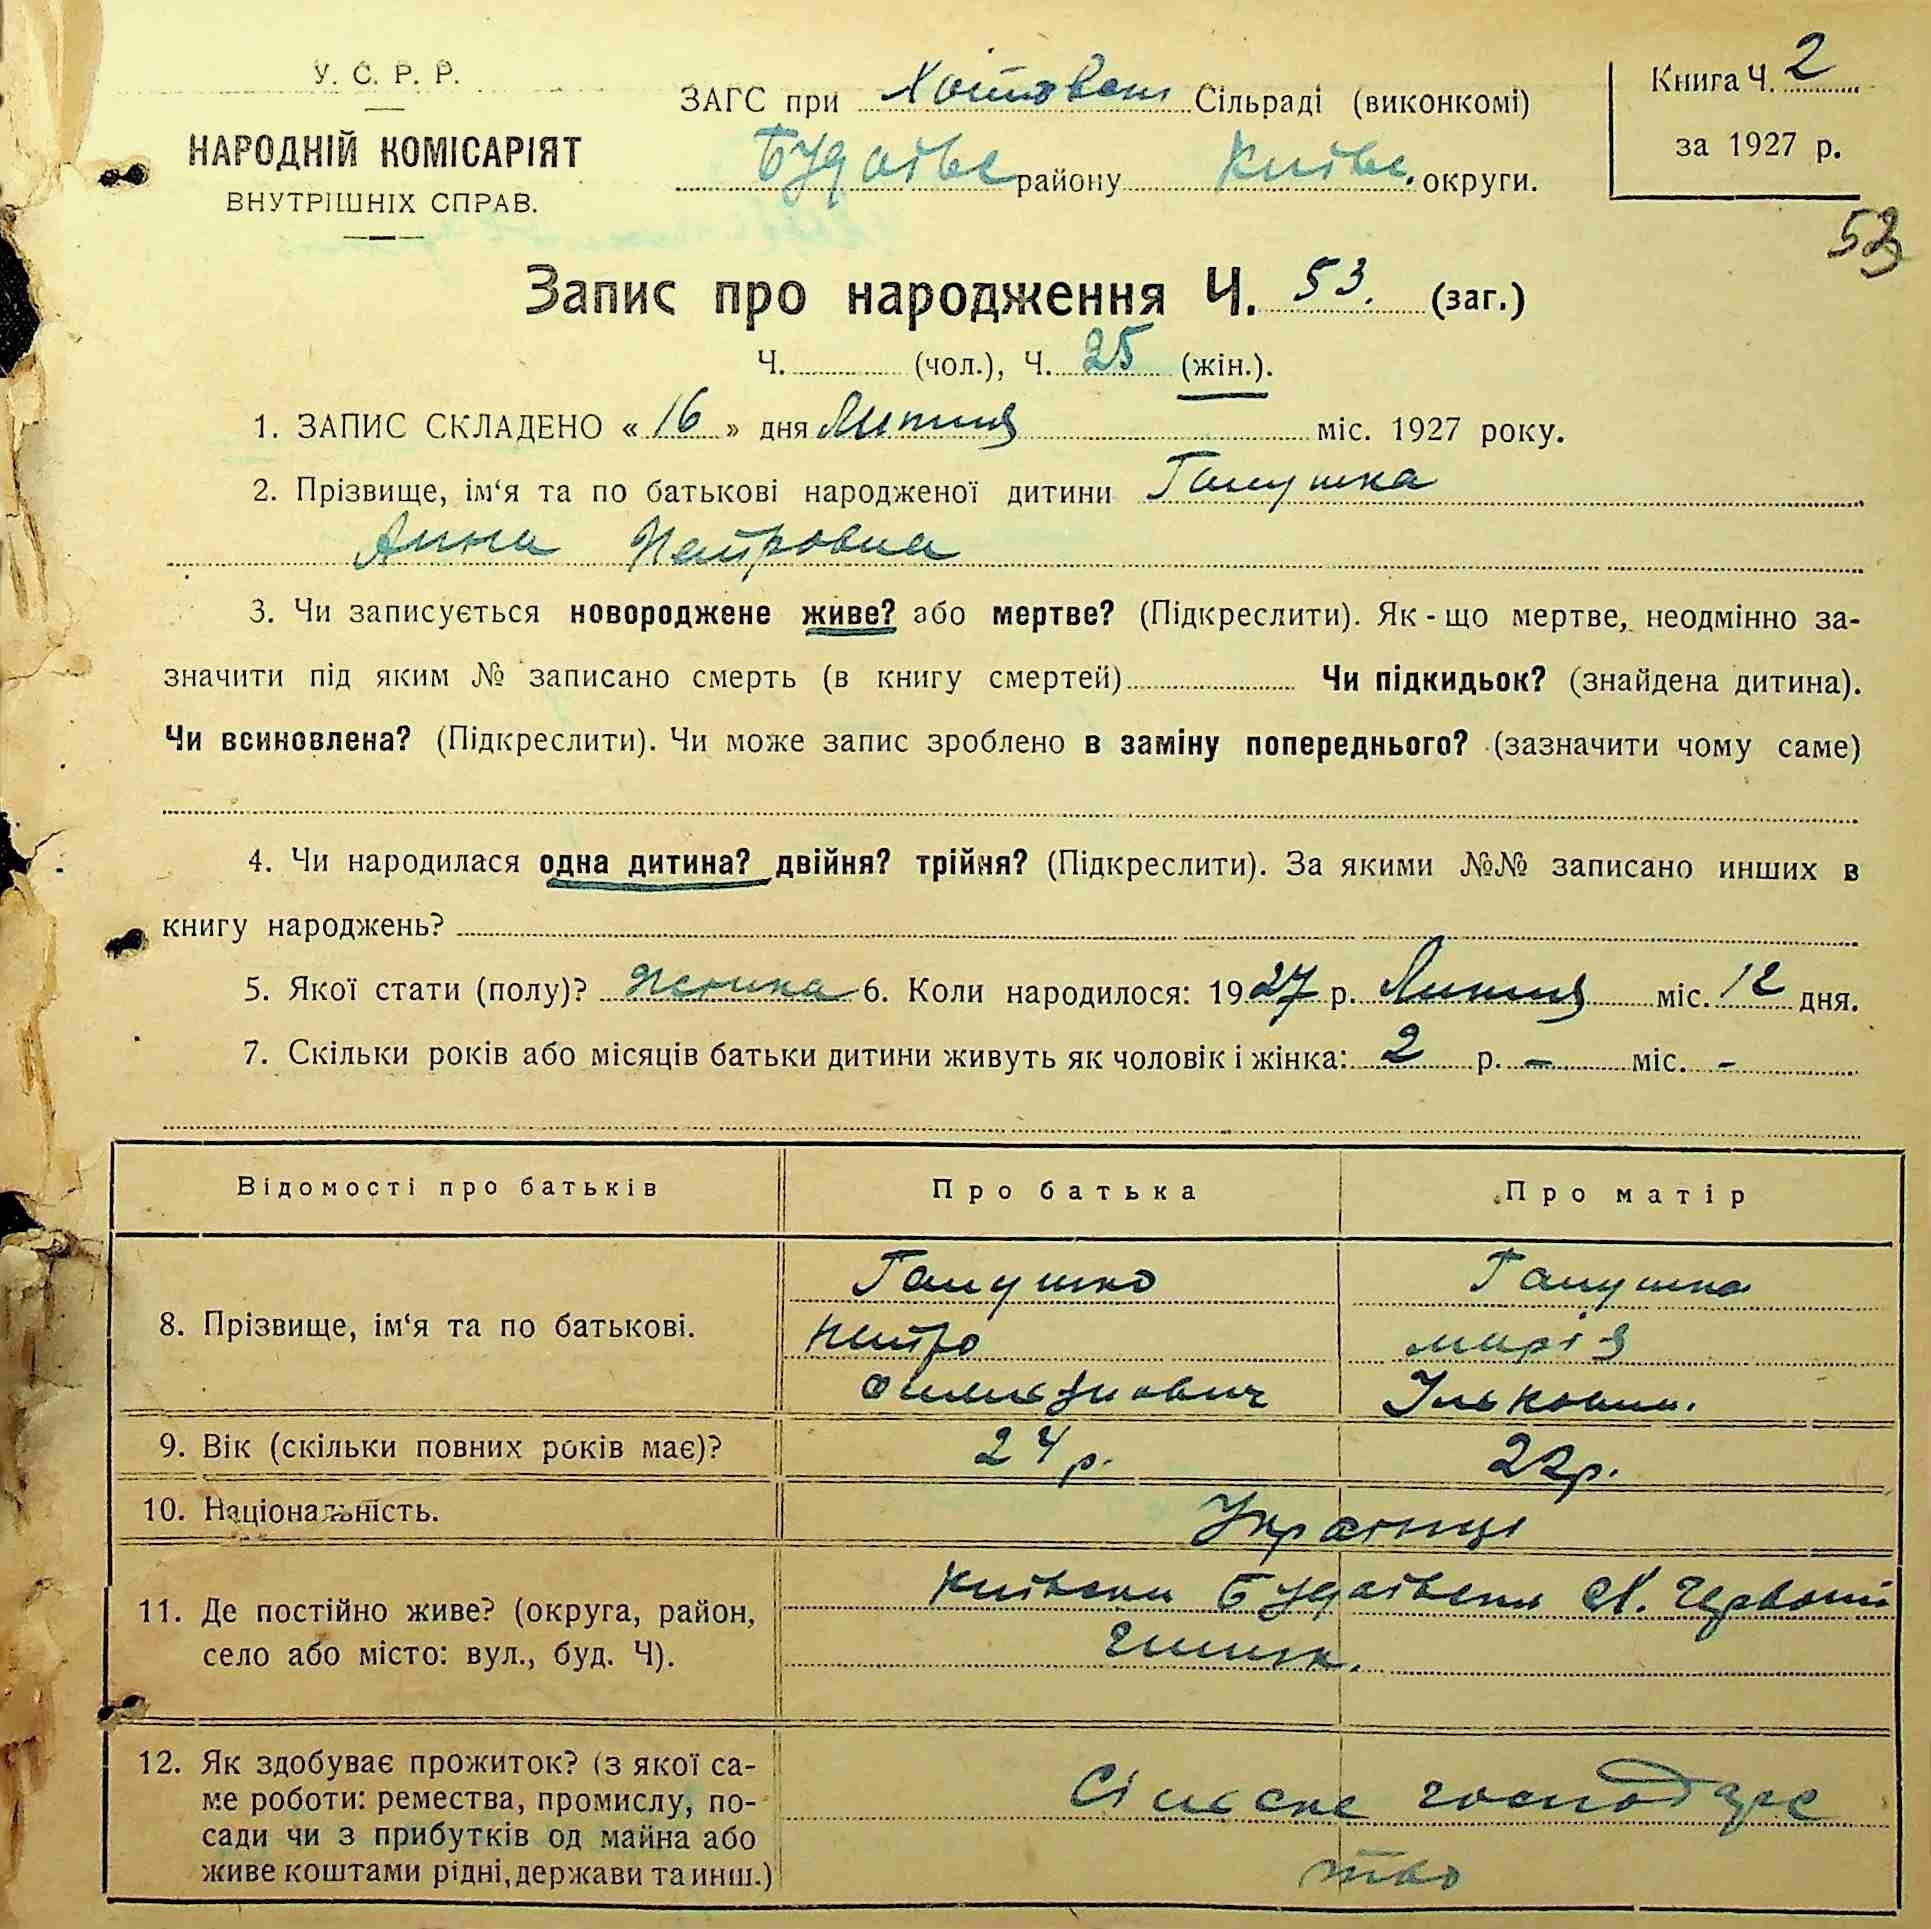 У. С. Р. Р.
НАРОДНІЙ КОМІСАРІЯТ
ВНУТРІШНІХ СПРАВ.
ЗАГС при Хотовськ Сільраді (виконкомі)
Будаївс району Київс. округи.
Книга Ч. 2
за 1927 р.
53
Запис про народження Ч. 53. (заг.)
Ч. (чол.), Ч. 25 (жін.).
1. ЗАПИС СКЛАДЕНО « 16 » дня Липня міс. 1927 року.
2. Прізвище, ім‘я та по батькові народженої дитини Галушка
Анна Петровна
3. Чи записується новороджене живе? або мертве? (Підкреслити). Як-що мертве, неодмінно за-
значити під яким № записано смерть (в книгу смертей) Чи підкидьок? (знайдена дитина).
Чи всиновлена? (Підкреслити). Чи може запис зроблено в заміну попереднього? (зазначити чому саме)
4. Чи народилася одна дитина? двійня? трійня? (Підкреслити). За якими №№ записано инших в
книгу народжень?
5. Якої стати (полу)? Жіноча 6. Коли народилося: 1927 р. Липня міс. 12 дня.
7. Скільки років або місяців батьки дитини живуть як чоловік і жінка: 2 р. – міс. –
Відомості про батьків Про батька Про матір
8. Прізвище, ім‘я та по батькові. Галушко Галушка
Петро Марія
Ільковна.
9. Вік (скільки повних років має)? 24 р. 22 р.
10. Національність. Українці
11. Де постійно живе? (округа, район,
село або місто: вул., буд. Ч). Київськ Будаївськ Х. Червоний
12. Як здобуває прожиток? (з якої са-
ме роботи: ремества, промислу, по-
сади чи з прибутків од майна або
живе коштами рідні, держави та инш.) Сільске господарс
тво